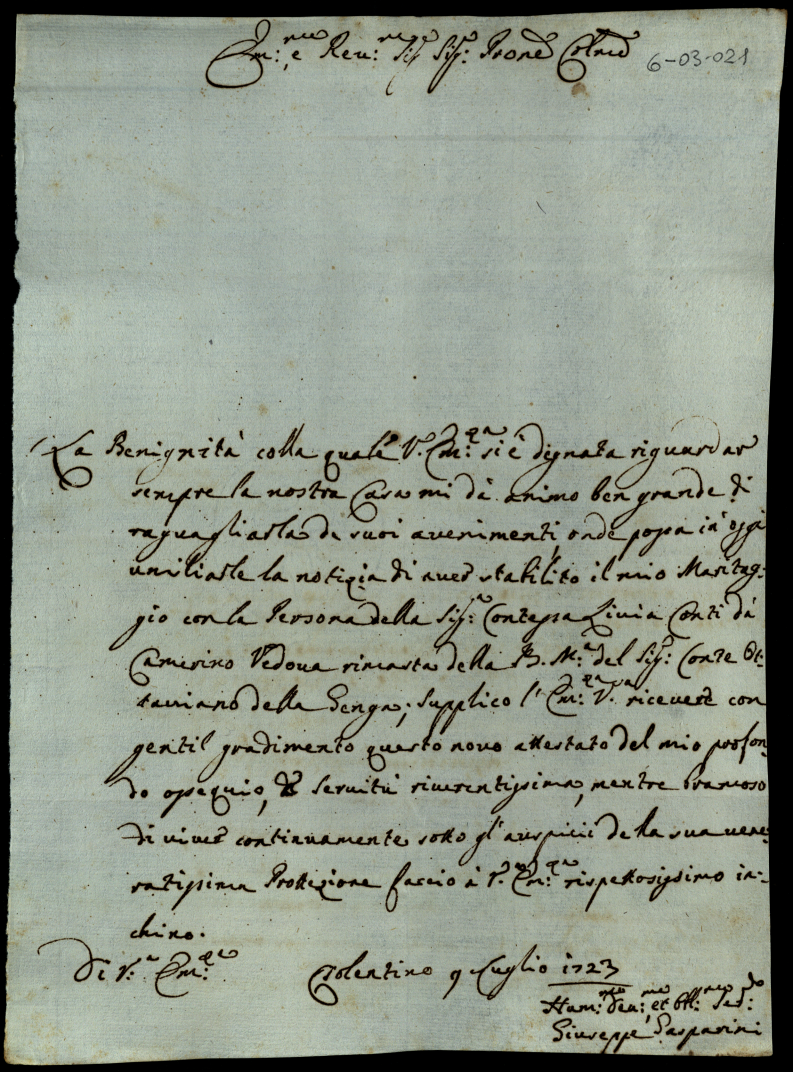 Em:mo e Reu:mo Sig Sig:r Prone Colmo
6-03-021
La Benignità colla quale V. Em:za si è dignata riguardar
sempre la nostra Casa mi dà animo ben grande di
raguagliarla de suoi avenimenti, onde possa in oggi
umiliarle la notizia di aver stabilito il mio Maritag:
gio con la Persona della Sig:ra Contessa Livia Conti dà
Camerino Vedova rimasta della B. M:a del Sig:r Conte Ot:
taviano della Genga; supplico l' Em:za V.a ricevere con
gentil gradimento questo novo attestato del mio profon:
do ossequio, e Servitù riverentissima, mentre bramoso
di viver continuamente sotto gl' auspicii della sua vene:
ratissima Prottezione faccio à V. Em:za rispettosissimo in:
chino.
Di V.a Em:za
Tolentino 9 Luglio 1723
Hum:mo deu:mo et Obl:mo Ser:do
Giuseppe Gasparini